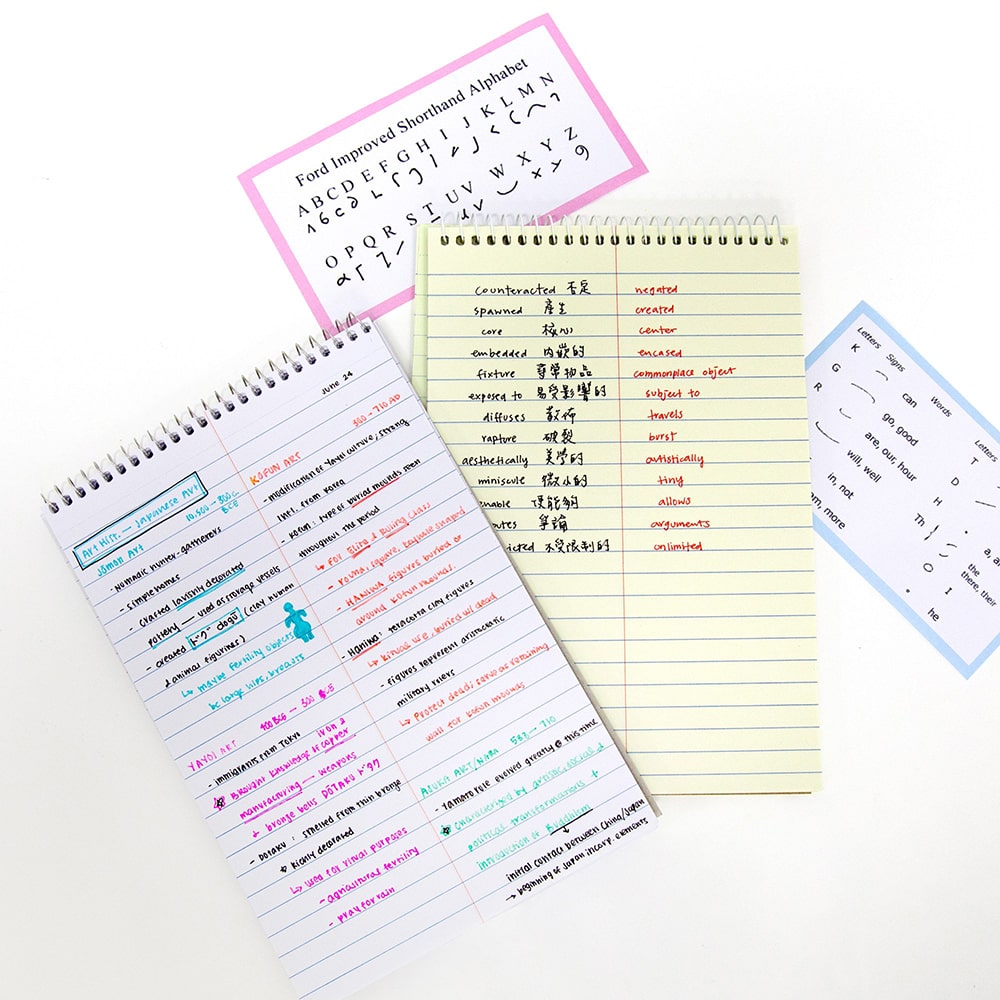 Ford Improved Shorthand Alphabet
A B C D E F G H I J K L M N
O P Q R S T U V W X Y Z
counteracted 否定 negated
spawned 產生 created
core 核心 center
embedded 內嵌的 encased
fixture 尋常物品 commonplace object
exposed to 易受影響的 subject to
diffuses 散佈 travels
rapture 破裂 burst
aesthetically 美學的 autistically
miniscule 微小的 tiny
enable 使能夠 allows
爭論 arguments
不受限制的 unlimited
June 24
Art Hist. — Japanese Art
10,500 – 300 BCE
Jōmon Art
- nomadic hunter-gatherers
- simple homes
- crafted lavishly decorated
pottery — used as storage vessels
- created ドグー dogū (clay human
& animal figurines)
↳ maybe fertility objects
bc large hips, breasts
YAYOI ART 400 BCE – 300 CE
- immigrants from Tokyo
Brought knowledge of iron &
copper
manufacturing — weapons
+ bronze bells DŌTAKU ドタク
- Dotaku : smelted from thin bronze
richly decorated
↳ used for ritual purposes
- agricultural fertility
- pray for rain
300 – 710 AD
KOFUN ART
- modification of Yayoi culture, strong
infl. from Korea
- Kofun : type of burial mounds seen
throughout the period
↳ For Elite & Ruling Class
- round, square, keyhole shaped
- HANIWA figures buried or
around kofun mounds.
- Haniwa : teracotta clay figures
↳ Ritual use, buried w/ dead
- figures represent aristocratic
military rulers
↳ Protect dead; serve as retaining
wall for kofun mounds
ASUKA ART/NARA 552 – 710
- Yamato role evolved greatly @ this time
Characterized by artistic, social, &
political transformations +
introduction of Buddhism
initial contact between China/Japan
→ beginning of Japan incorp. elements
Letters Signs Words Letters
K can T
G go, good D
R are, our, hour H
will, well Th
in, not
am, more
a, a
the
there, their
O I
he